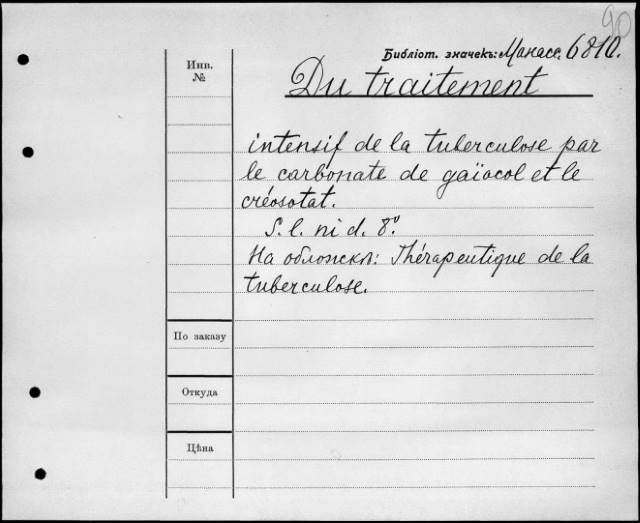 90
Библіот. значекъ: Манасс. 6810.
Инв.
№
Du traitement
intensif de la tuberculose par
le carbonate de gaïacol et le
créosotat.
S. l. ni d. 8º.
На обложкѣ: Thérapeutique de la
tuberculose.
По заказу
Откуда
Цѣна